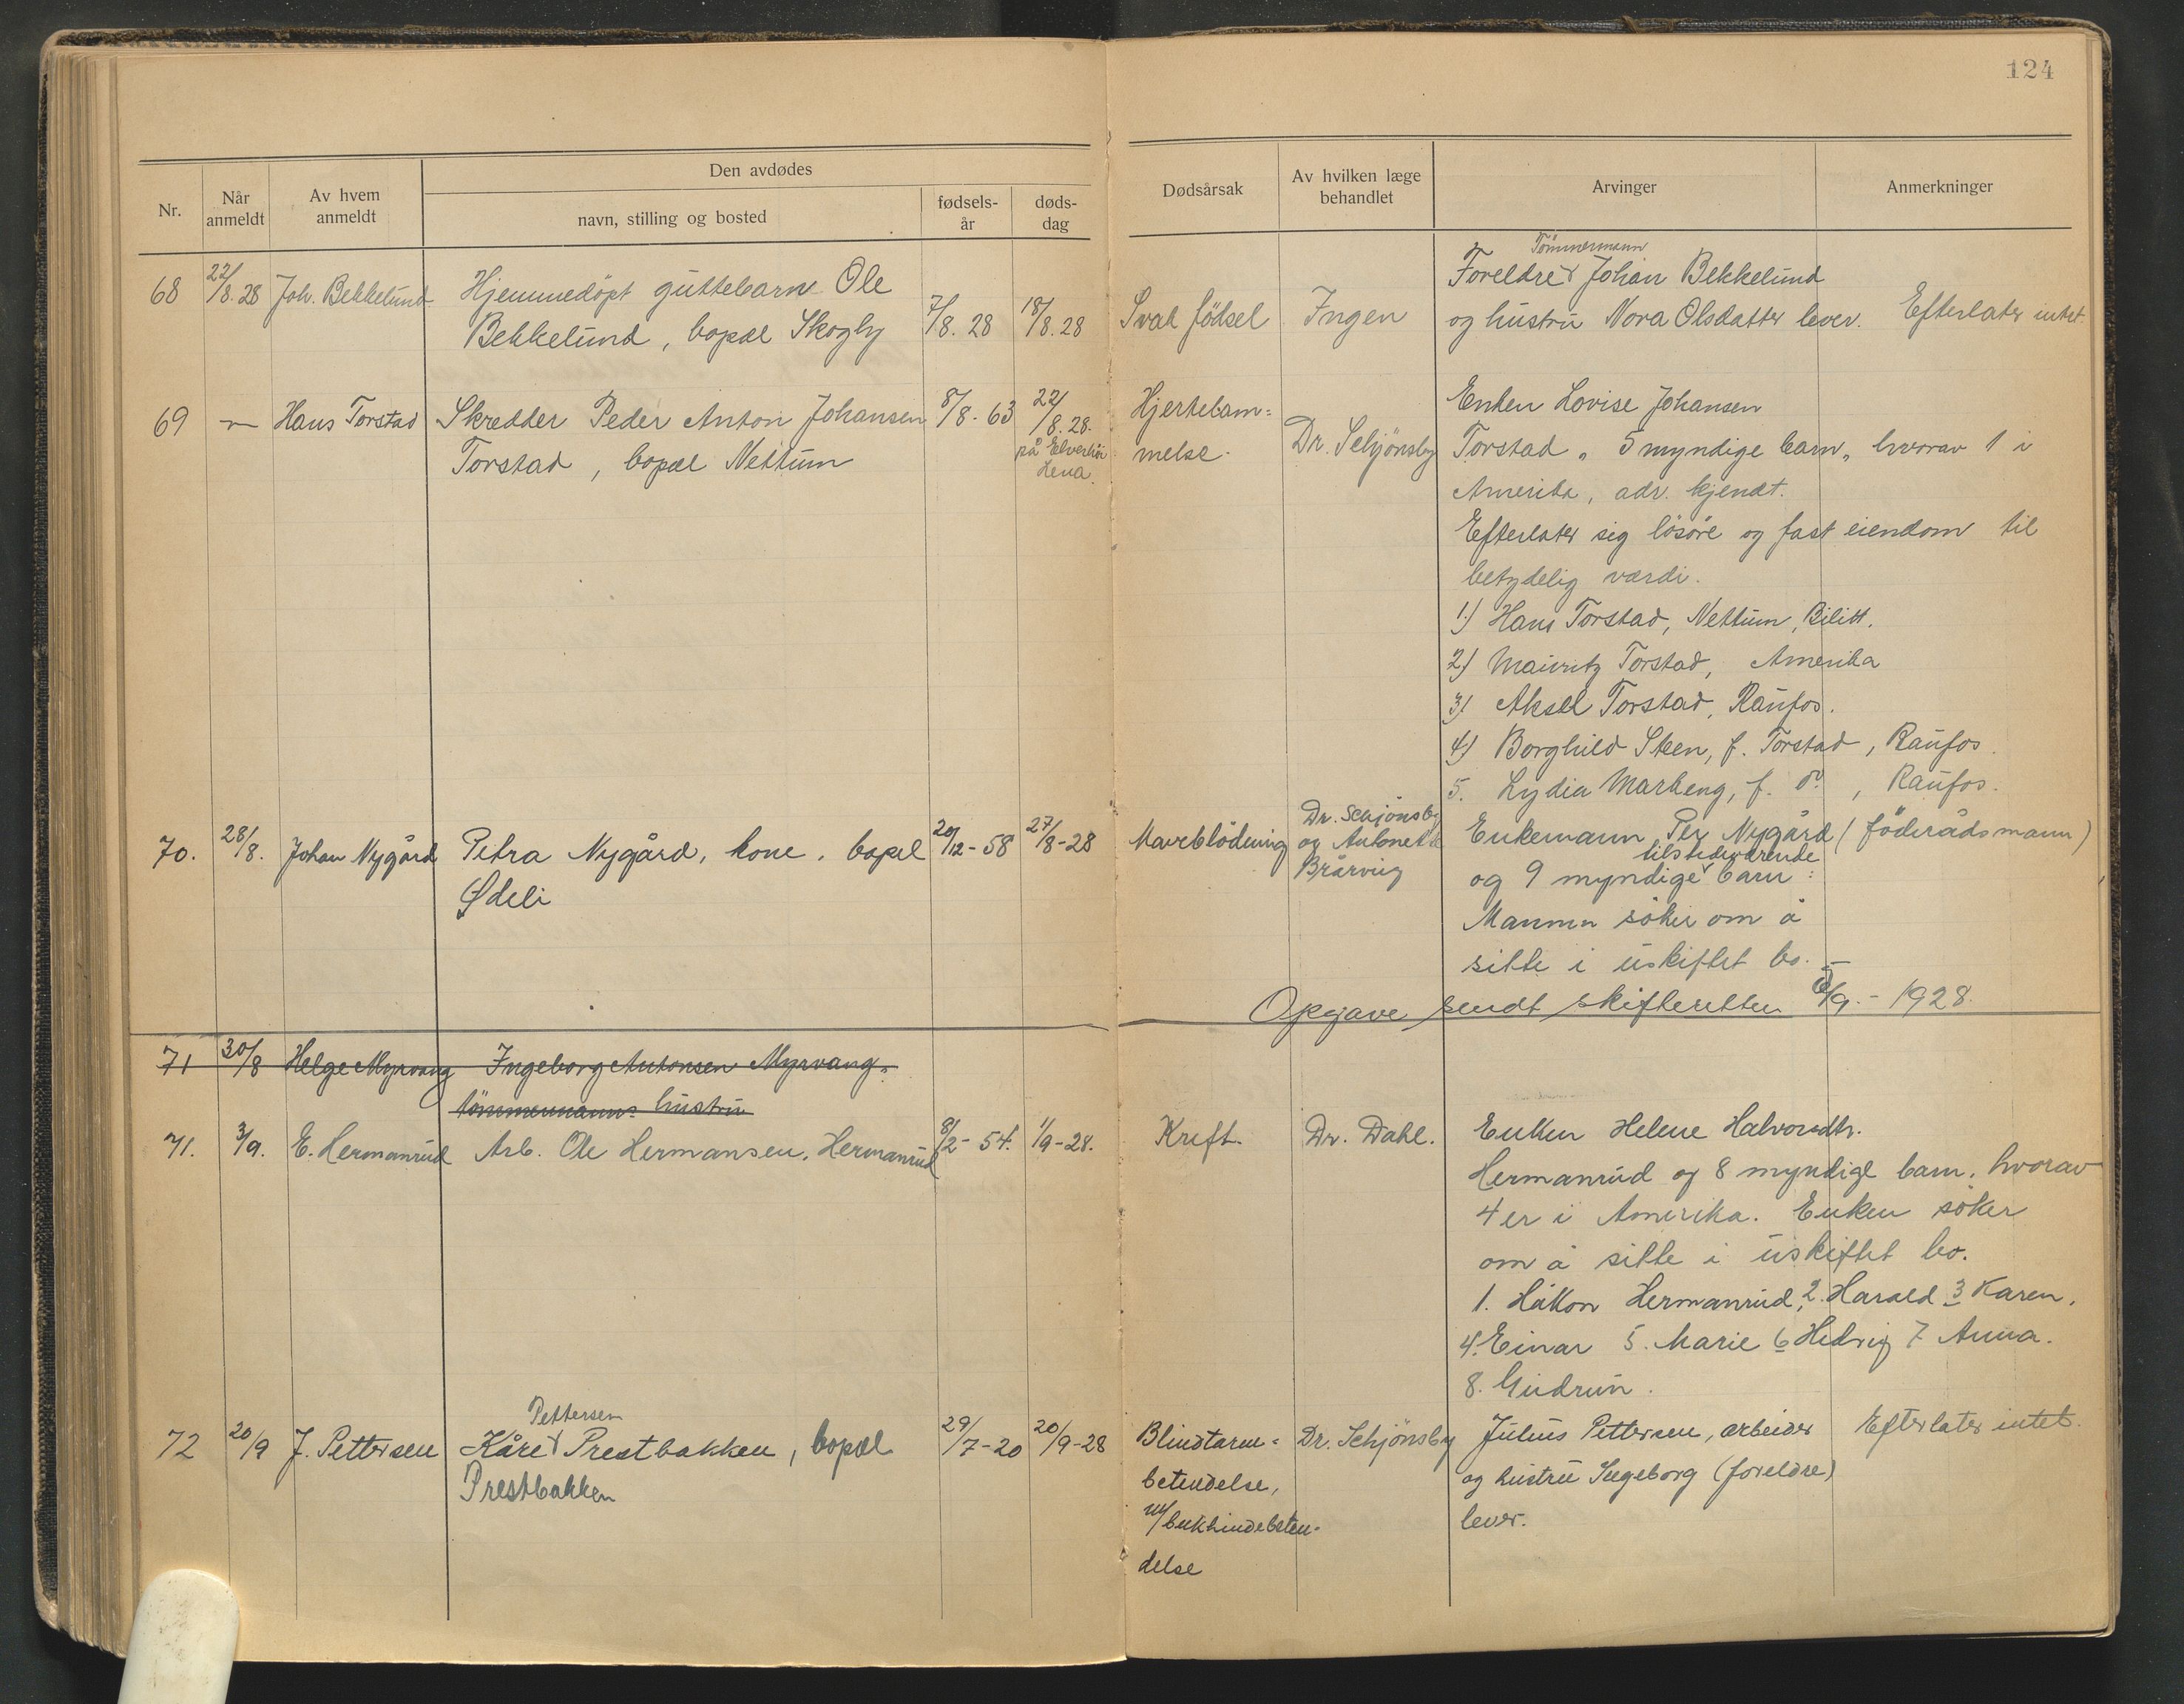 124
Nr.
Når anmeldt
Av hvem anmeldt
Den avdødes
navn, stilling og bosted
fødsels-år
døds-dag
Dødsårsak
Av hvilken læge behandlet
Arvinger
Anmerkninger
68 22/8.28 Joh. Bekkelund Hjemmedøpt guttebarn Ole
Bekkelund, bopæl Skogly 7/8.28 18/8.28 Svak fødsel Ingen
Tømmermann
Foreldre Johan Bekkelund
og hustru Nora Olsdatter lever. Efterlater intet.
69 — Hans Torstad Skredder Peder Anton Johansen 8/8-63 22/8.28.
Torstad, bopæl Nettum
på Elverhøi
Lena.
Hjertelam=
melse.
Dr. Schjønsby
Enken Lovise Johansen
Torstad „ 5 myndige barn, hvorav 1 i
Amerika, adr. kjendt.
Efterlater sig løsøre og fast eiendom til
betydelig værdi.
1.) Hans Torstad, Nettum, Bilitt.
2) Mauritz Torstad, Amerika
3) Aksel Torstad, Raufos.
4) Borghild Steen, f. Torstad, Raufos.
5. Lydia Markeng, f. do, Raufos.
70. 28/8. Johan Nygård Petra Nygård, kone, bopæl 20/12-58 27/8-28
Ødeli
Maveblødning
Dr. Schjønsby
og Antonette
Brårvig
Enkemann Per Nygård (føderådsmann)
tilstedeværende
og 9 myndige barn:
Mannen søker om å
sitte i uskiftet bo. —
Opgave sendt skifteretten 6/9.-1928.
71 30/8 Helge Myrvang Ingeborg Antonsen Myrvang,
tømmermanns hustru
71. 3/9. E. Hermanrud Arb. Ole Hermansen, Hermanrud 8/2-54. 1/9-28. Kreft. Dr. Dahl.
Enken Helene Halvorsdtr.
Hermanrud og 8 myndige barn, hvorav
4 er i Amerika. Enken søker
om å sitte i uskiftet bo.
1. Håkon Hermanrud, 2. Harald 3 Karen,
4. Einar 5. Marie 6 Hedvig 7 Anna.
8. Gudrun.
72 20/9 J. Pettersen
Pettersen
Kåre Prestbakken, bopæl
Prestbakken
29/7-20 20/9-28
Blindtarm=
betendelse,
m/bukhindebeten-
delse
Dr. Schjønsby
Julius Pettersen, arbeider Efterlater intet.
og hustru Ingeborg (foreldre)
lever.